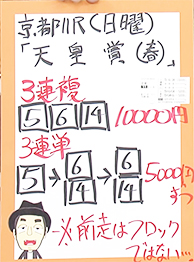 京都11R(日曜)
「天皇賞(春)」
3連複
5 6 14 10000円
3連単
5→6 14→6 14 5000円ずつ
※前走はフロック
ではない…